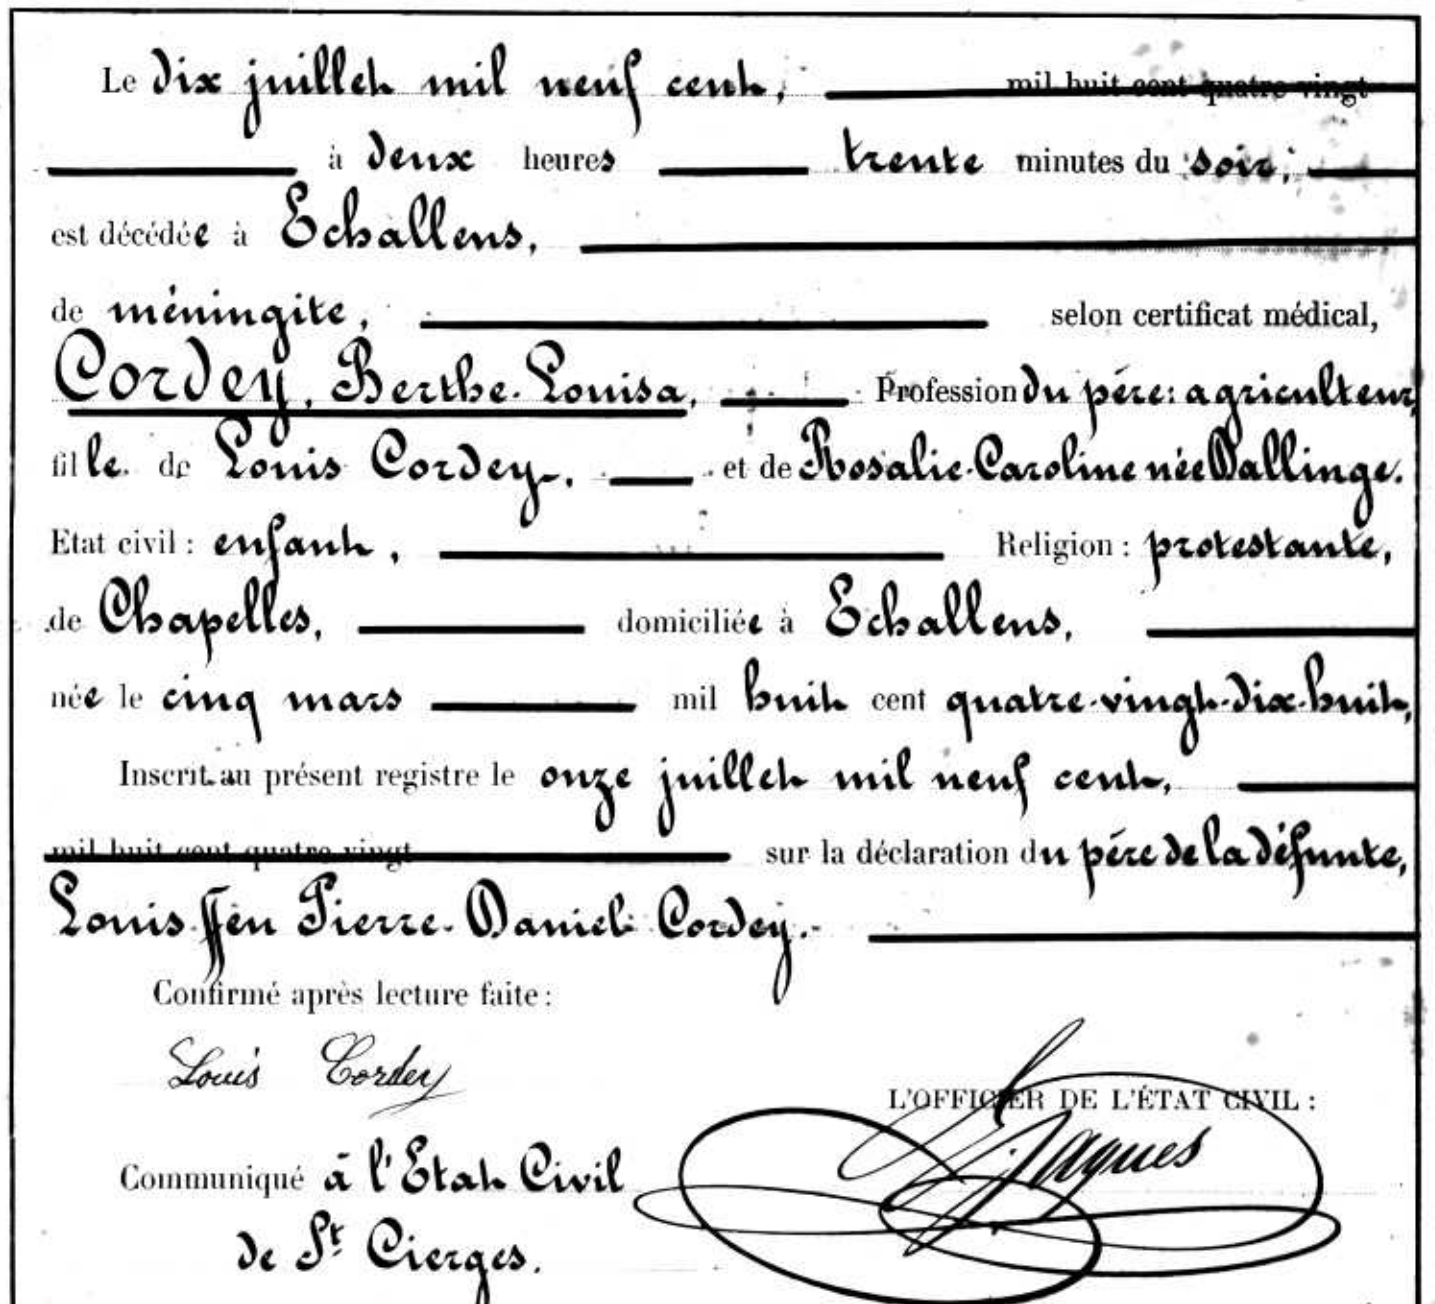 Le dix juillet mil neuf cent, mil huit cent quatre vingt
à deux heures trente minutes du soir,
est décédée à Echallens,
de méningite, selon certificat médical,
Cordey, Berthe-Louisa, Profession du père: agriculteur,
fille de Louis Cordey, et de Rosalie-Caroline née Dallinge.
Etat civil : enfant, Religion : protestante,
de Chapelles, domiciliée à Echallens,
née le cinq mars mil huit cent quatre-vingt-dix-huit,
Inscrit au présent registre le onze juillet mil neuf cent,
mil huit cent quatre vingt sur la déclaration du père de la défunte,
Louis ffeu Pierre-Daniel Cordey.
Confirmé après lecture faite :
Louis Cordey
L'OFFICIER DE L'ÉTAT CIVIL :
Jaques
Communiqué à l'Etat Civil
de St Cierges.